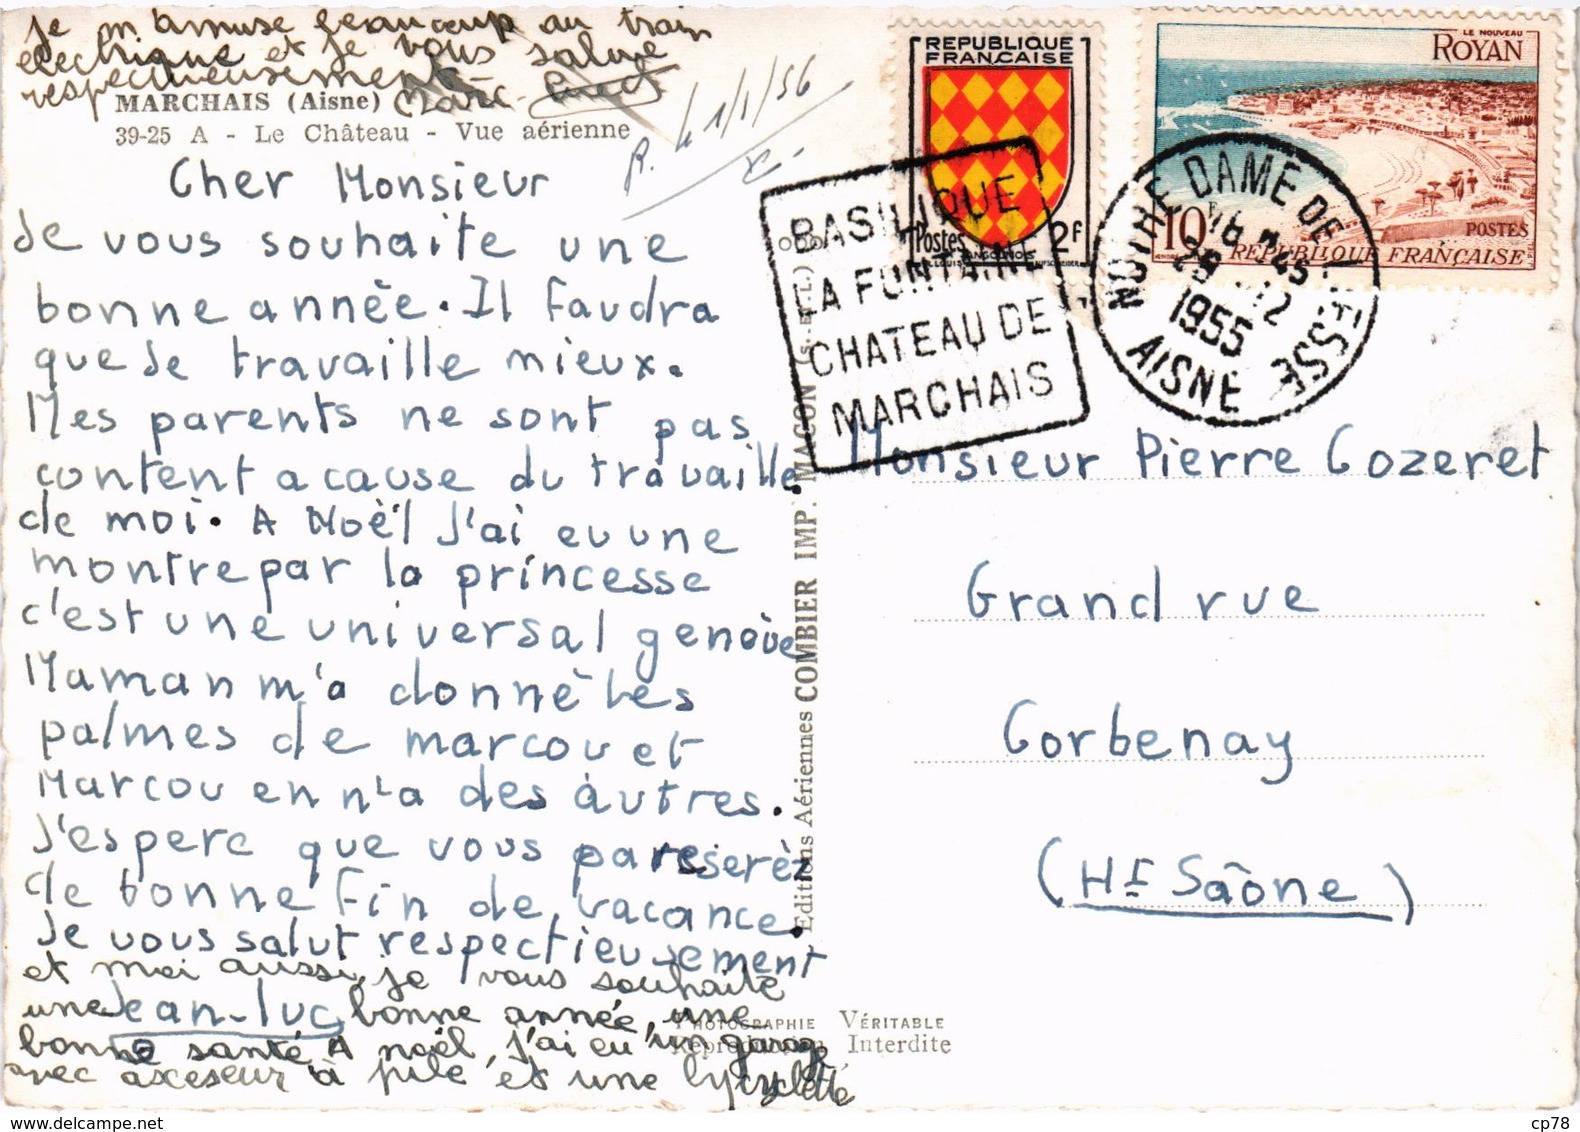 je m'amuse beaucoup au train
electrique et je vous salue
respectueusement Marc-
MARCHAIS (Aisne)
39-25 A - Le Château - Vue aérienne
R. 1/1/56
Cher Monsieur
Je vous souhaite une
bonne année. Il faudra
que Je travaille mieux.
Mes parents ne sont pas
content a cause du travaille
de moi. A Noël J'ai eu une
montre par la princesse
c'est une universal genève
Maman m'a donné Les
palmes de marcou et
Marcou en n'a des àutres.
J'espere que vous passerèz
de bonne fin de vacance.
Je vous salut respectieusement
Jean-luc
et moi aussi, je vous souhaite
une bonne année, une
bonne santé A noël, j'ai eu, un garage
avec axceseur à pile, et une bycyclette
Editions Aériennes COMBIER IMP. MACON (S.-et-L.)
PHOTOGRAPHIE VÉRITABLE
Reproduction Interdite
REPUBLIQUE
FRANÇAISE
Postes 2F
LE NOUVEAU
ROYAN
10F
POSTES
REPUBLIQUE FRANÇAISE
BASILIQUE
LA FONTAINE
CHATEAU DE
MARCHAIS
NOTRE DAME DE LIESSE
16 H 45
29 -12
1955
AISNE
Monsieur Pierre Gozeret
Grand rue
Corbenay
(Hte Saône)
cp78